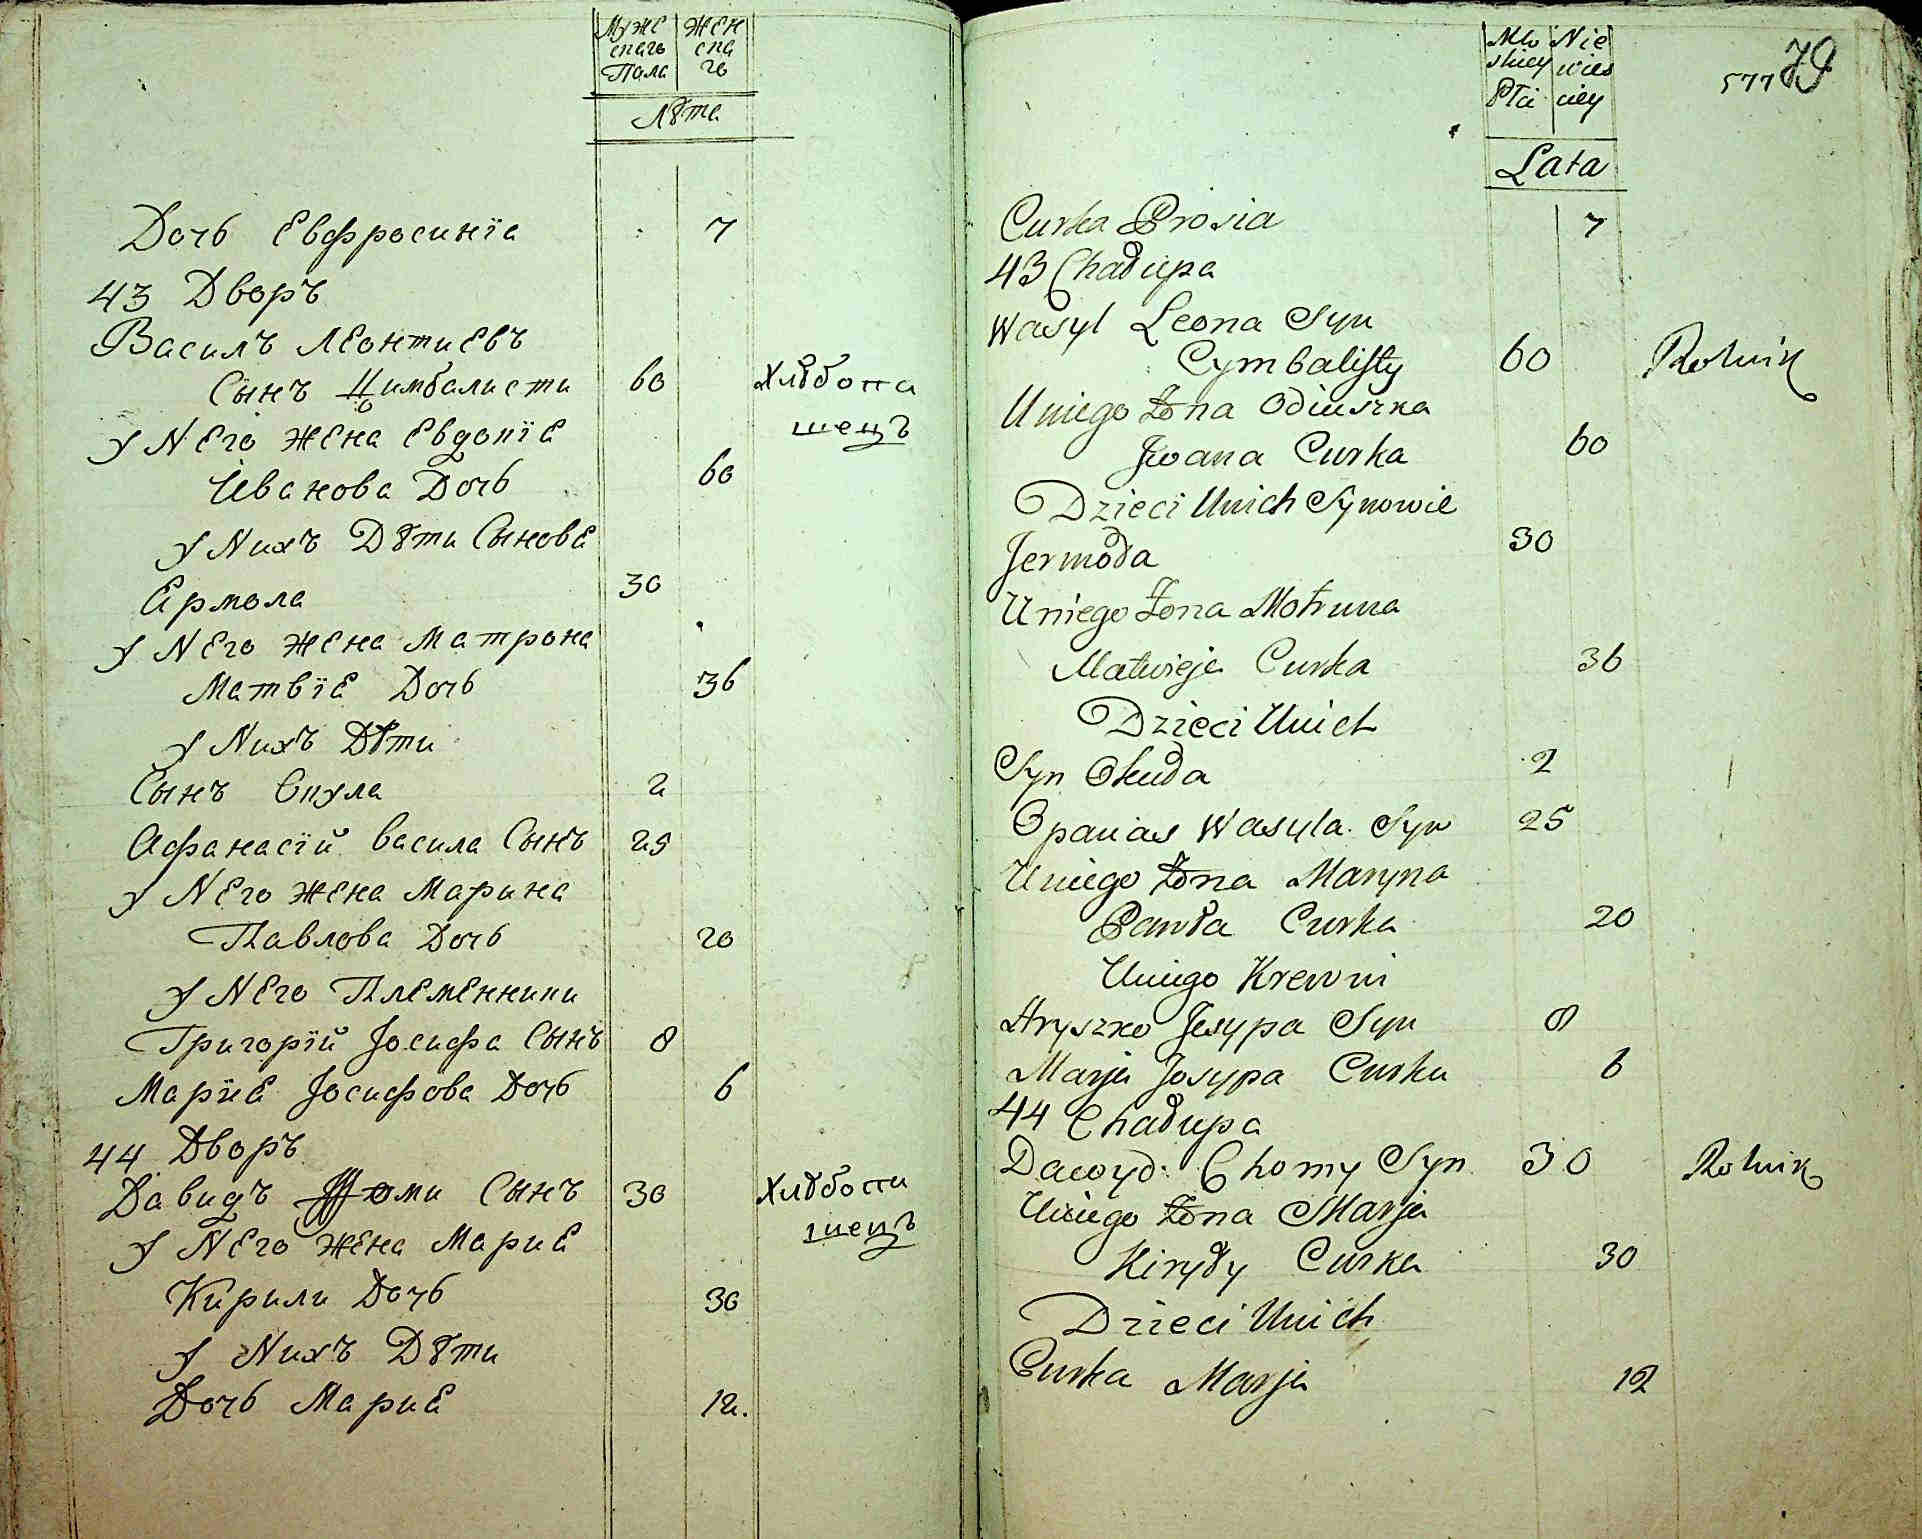 Муже
скаго
Пола
Жен
ска
го
Лѣта
Дочь Евфросинїа 7
43 Дворъ
Василъ Леонтиевъ
Сынъ Цимбалисти 60 Хлѣбопа
шецъ
у Него жена Евдокїа
Иванова Дочь 60
у Нихъ Дѣти Сынова
Ермола 30
у Него жена Матрона
Матвїа Дочь 36
у Нихъ Дѣти
Сынъ Окула 2
Афанасїй Васила Сынъ 25
у Него жена Марина
Павлова Дочь 20
у Него Племенники
Григорїй Јосифа Сынъ 8
Мариа Јосифова Дочь 6
44 Дворъ
Давидъ Фоми Сынъ 30 Хлѣбопа
шецъ
у Него жена Мариа
Кирили Дочь 30
у Нихъ Дѣти
Дочь Мариа 12.
Mło
skiey
Płci
Nie
wies
ciey
577 79
Lata
Curka Prosia 7
43 Chałupa
Wasyl Leona Syn
Cymbalisty 60 Rolnik
Uniego Żona Odiuszka
Jwana Curka 60
Dzieci Unich Synowie
Jermoła 30
Uniego Żona Motruna
Matwieja Curka 36
Dzieci Unich
Syn Okuła 2
Opanas Wasyla Syn 25
Uniego Żona Maryna
Pawła Curka 20
Uniego Krewni
Hryszko Josypa Syn 8
Marja Josypa Curka 6
44 Chałupa
Dawyd Chomy Syn 30 Rolnik
Uniego Żona Marja
Kiryły Curka 30
Dzieci Unich
Curka Marja 12